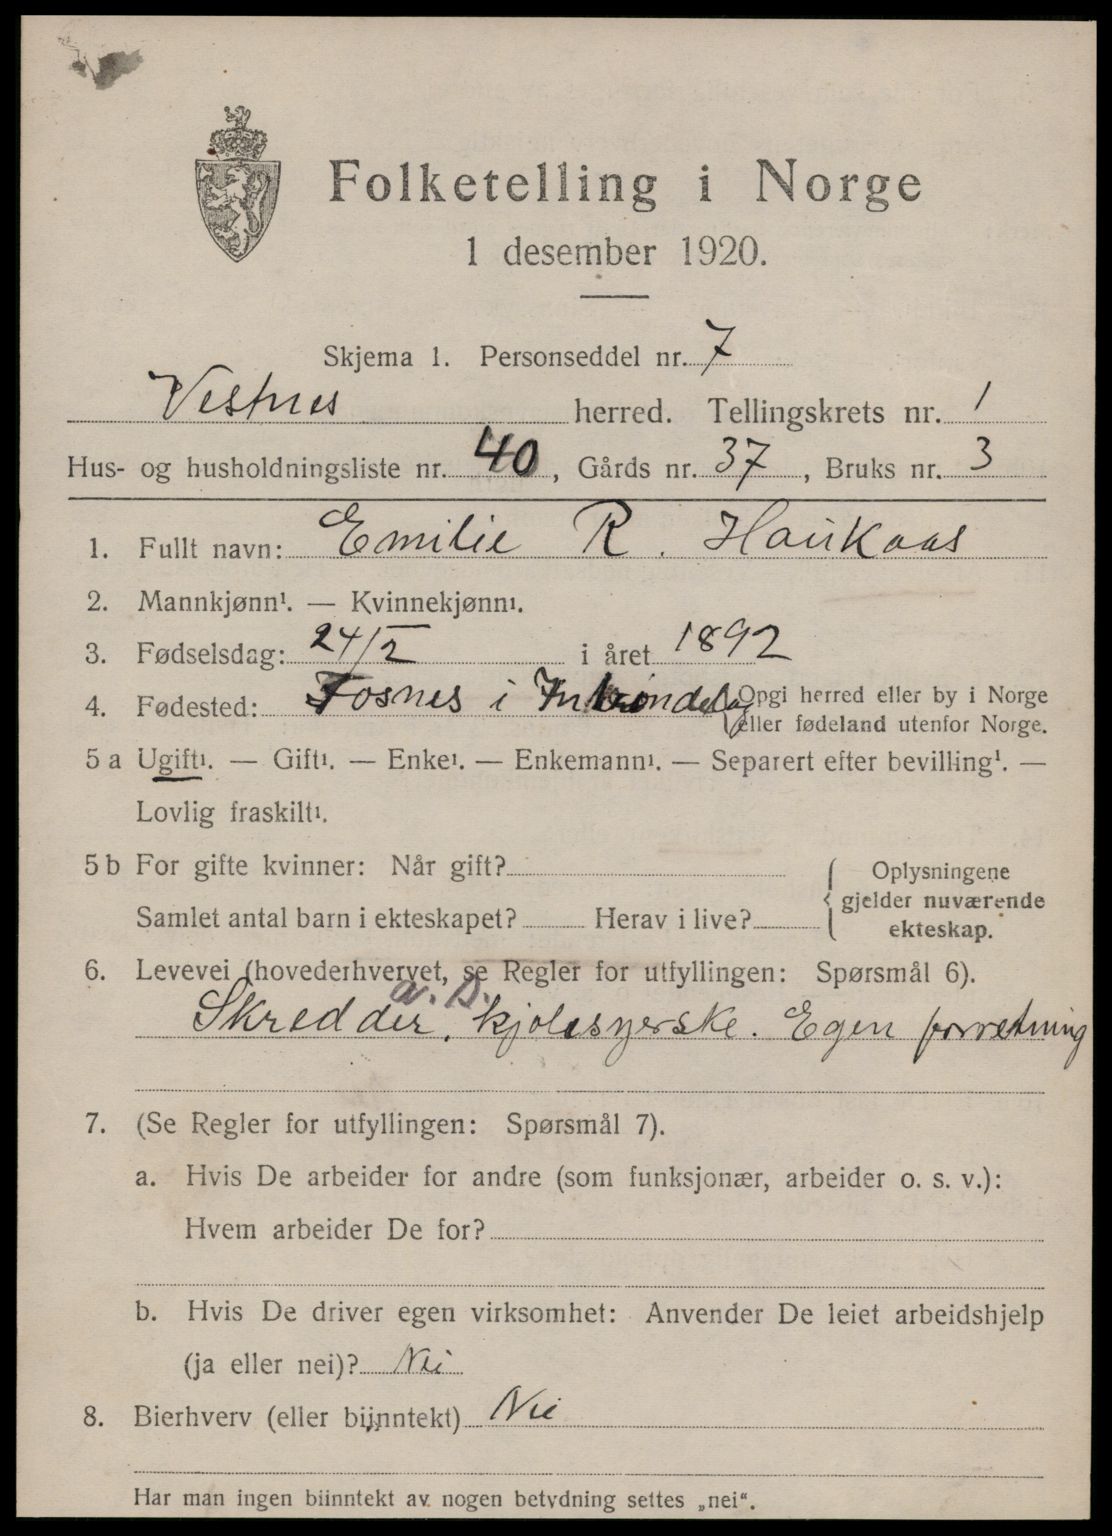 Folketelling i Norge
1 desember 1920.
Skjema 1. Personseddel nr. 7
Vestnes herred. Tellingskrets nr. 1
Hus- og husholdningsliste nr. 40, Gårds nr. 37, Bruks nr. 3
1. Fullt navn: Emilie R. Haukaas
2. Mannkjønn¹. — Kvinnekjønn¹.
3. Fødselsdag: 24/2 i året 1892
4. Fødested: Fosnes i Intrøndelag Opgi herred eller by i Norge
eller fødeland utenfor Norge.
5 a Ugift¹. — Gift¹. — Enke¹. — Enkemann¹. — Separert efter bevilling¹. —
Lovlig fraskilt¹.
5 b For gifte kvinner: Når gift?
Samlet antal barn i ekteskapet? Herav i live?
Oplysningene
gjelder nuværende
ekteskap.
6. Levevei (hovederhvervet, se Regler for utfyllingen: Spørsmål 6).
a. D.
Skredder, kjolesyerske. Egen forretning
7. (Se Regler for utfyllingen: Spørsmål 7).
a. Hvis De arbeider for andre (som funksjonær, arbeider o. s. v.):
Hvem arbeider De for?
b. Hvis De driver egen virksomhet: Anvender De leiet arbeidshjelp
(ja eller nei)? Nei
8. Bierhverv (eller biinntekt) Nei
Har man ingen biinntekt av nogen betydning settes „nei“.